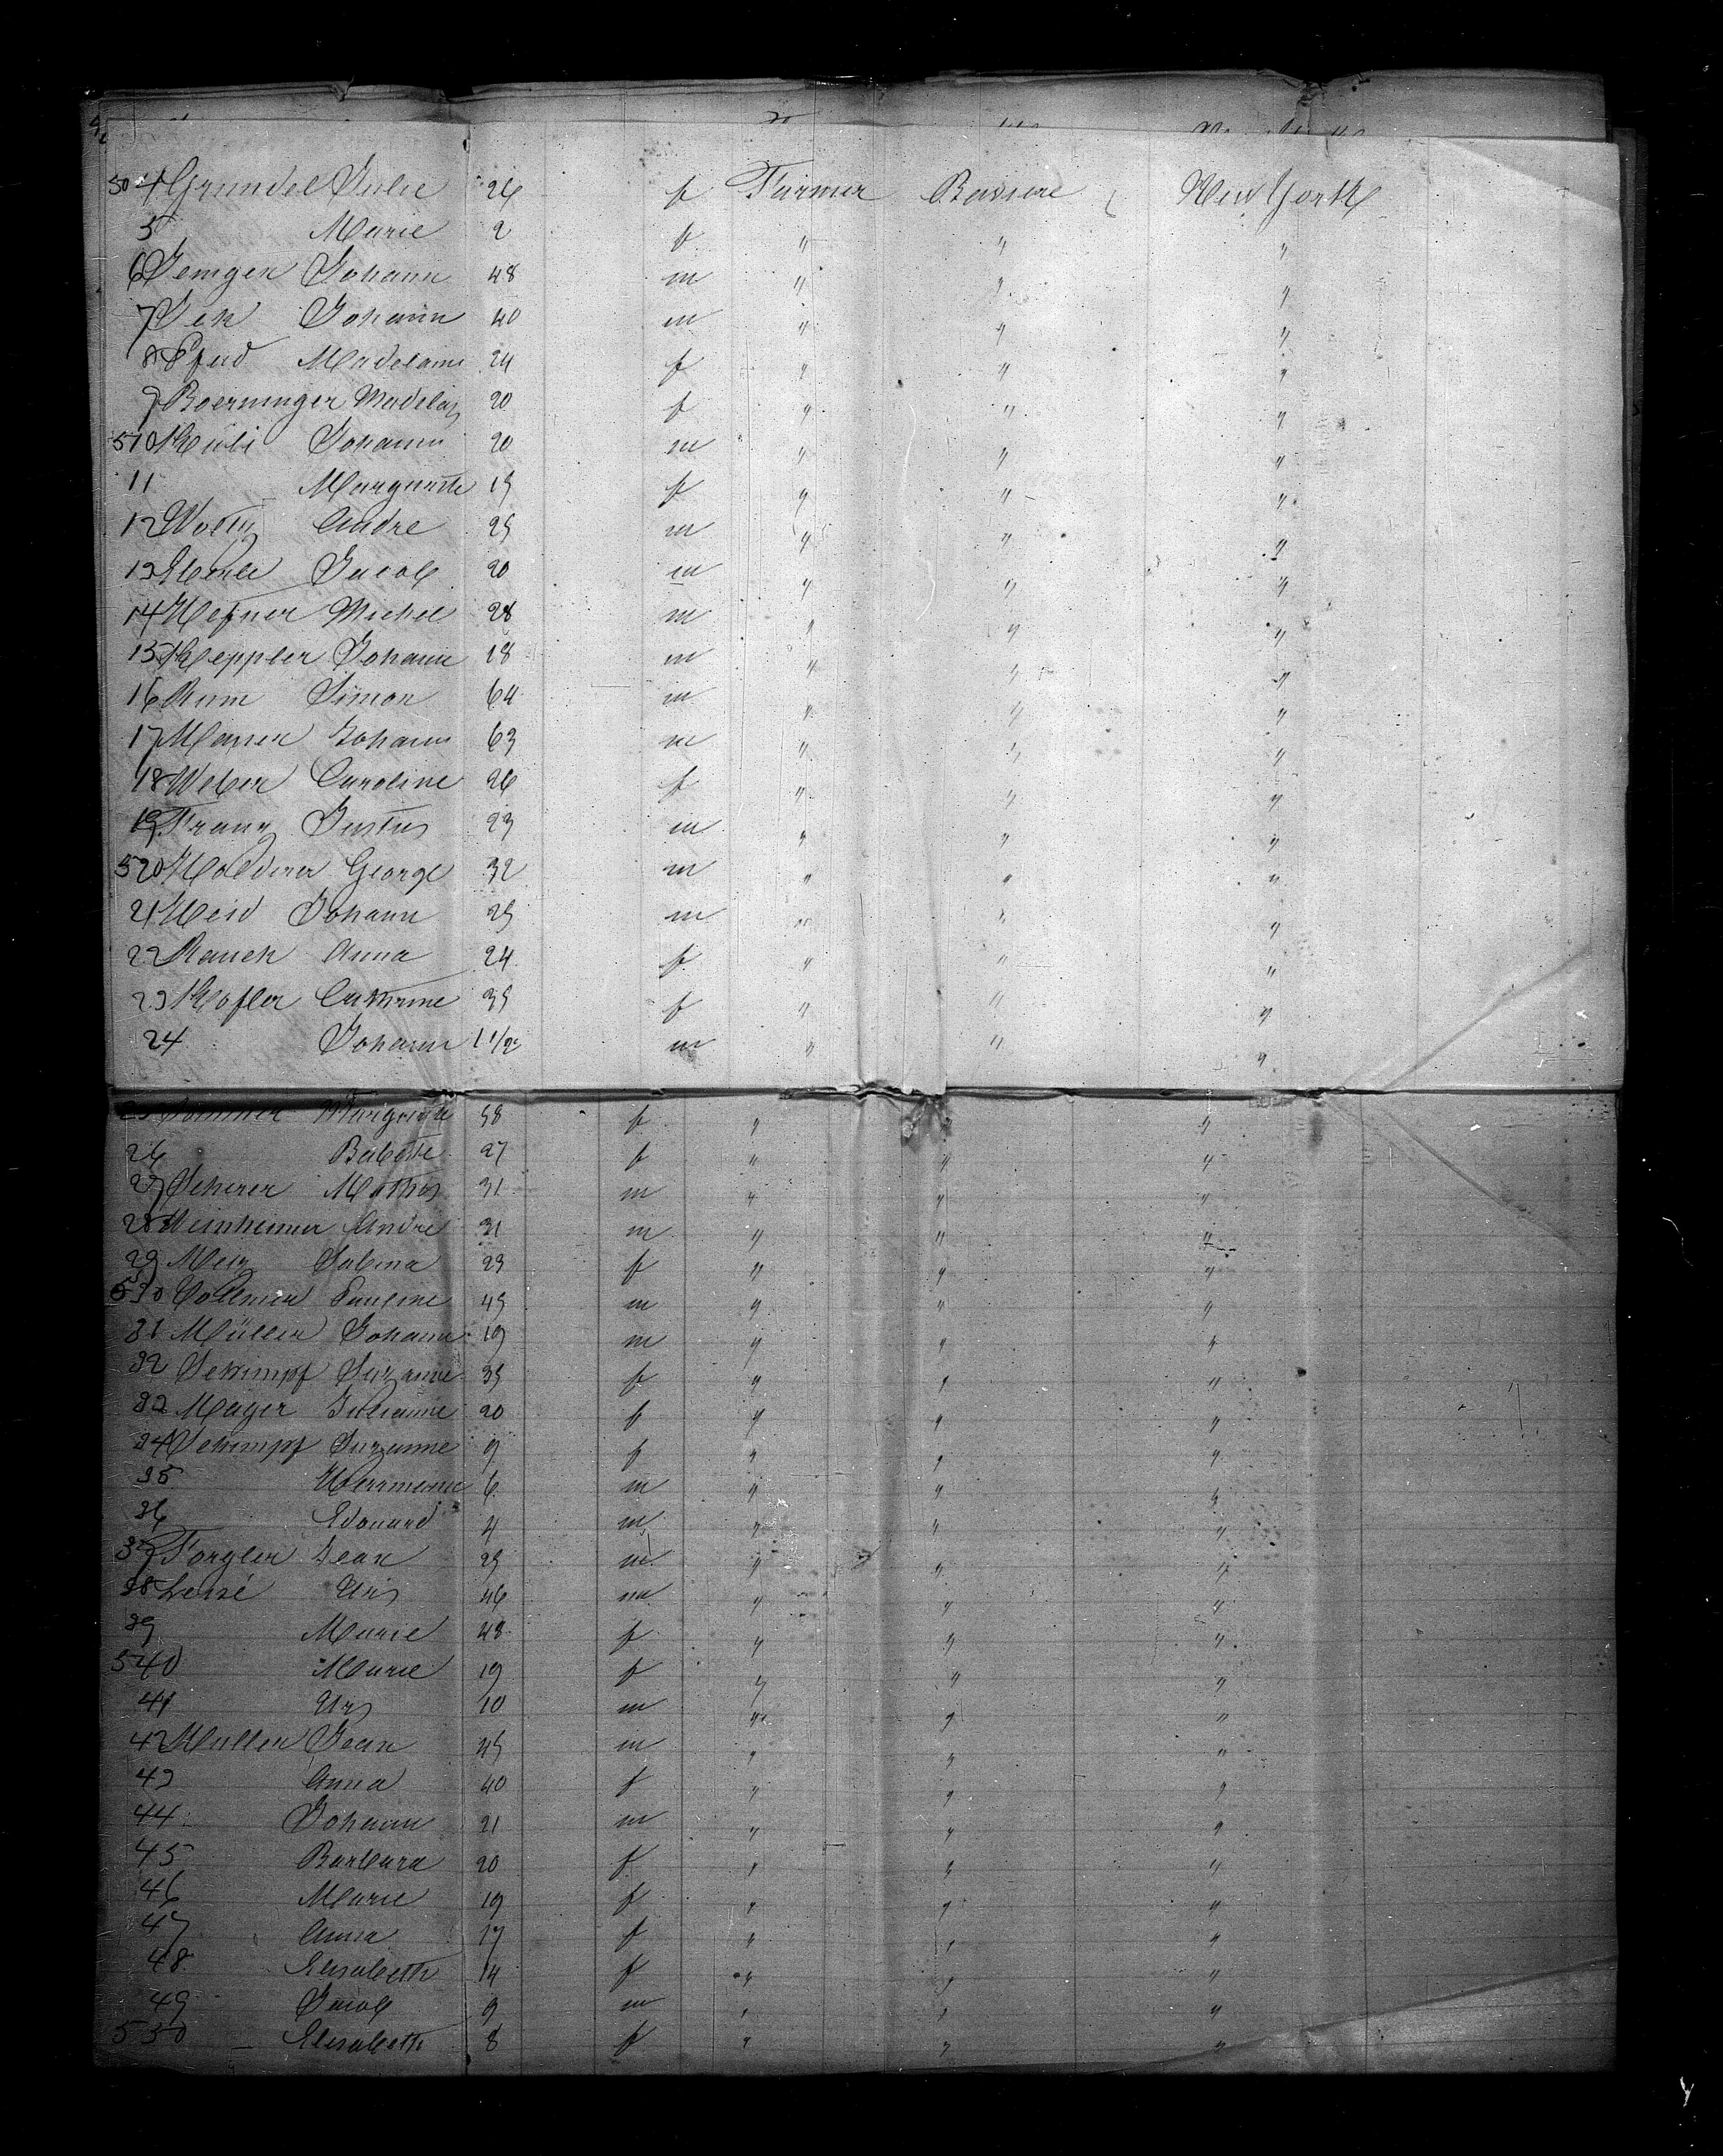 504 Grundel Julie 26 f Farmer Baviere New York
5 Marie 2 f " " "
6 Jemger Johann 48 m " " "
7 Johann 40 m " " "
8 Madelaine 24 f " " "
9 Boerninger Madelain 20 f " " "
510 Johann 20 m " " "
11 Marguerite 19 f " " "
12 Andre 25 m " " "
13 Jacob 20 m " " "
14 Hefner Michel 28 m " " "
15 Keppler Johann 18 m " " "
16 Simon 64 m " " "
17 Johann 63 m " " "
18 Weber Caroline 26 f " " "
19 Franz Justus 23 m " " "
520 Holderer George 32 m " " "
21 Heid Johann 25 m " " "
22 Rauch Anna 24 f " " "
23 Kofler Catherine 35 f " " "
24 Johann 1 1/2 m " " "
25 Sommer Marguerite 58 f " "
26 Babette 27 f " " "
27 Scherer Mathias 31 m " " "
28 Weinheimer Andre 31 m " " "
29 Merz Sabina 23 f " " "
530 Collmer 45 m " " "
31 Müller Johann 19 m " " "
32 Schimpf Suzanne 35 f " " "
33 Mayer Julianne 20 f " " "
34 Schimpf Suzanne 9 f " " "
35 Herrmann 6 m " " "
36 Edouard 4 m " " "
37 Forgler Jean 25 m " " "
38 46 m " " "
39 Marie 48 f " " "
540 Marie 19 f " " "
41 Urs 10 m " " "
42 Muller Jean 45 m " " "
43 Anna 40 f " " "
44 Johann 21 m " " "
45 Barbara 20 f " " "
46 Marie 19 f " " "
47 Anna 17 f " " "
48 Elisabeth 14 f " " "
49 Jacob 9 m " " "
550 Elisabeth 8 f " " "